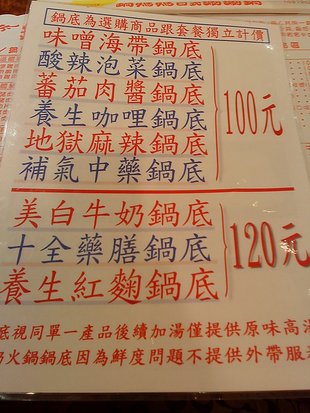 鍋底為選購商品跟套餐獨立計價
味噌海帶鍋底
酸辣泡菜鍋底
蕃茄肉醬鍋底
養生咖哩鍋底
地獄麻辣鍋底
補氣中藥鍋底
100元
美白牛奶鍋底
十全藥膳鍋底
養生紅麴鍋底
120元
底視同單一產品後續加湯僅提供原味高湯
火鍋鍋底因為鮮度問題不提供外帶服